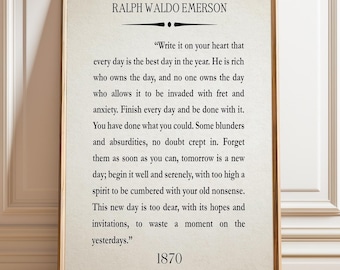 RALPH WALDO EMERSON
“Write it on your heart that
every day is the best day in the year. He is rich
who owns the day, and no one owns the day
who allows it to be invaded with fret and
anxiety. Finish every day and be done with it.
You have done what you could. Some blunders
and absurdities, no doubt crept in. Forget
them as soon as you can, tomorrow is a new
day; begin it well and serenely, with too high a
spirit to be cumbered with your old nonsense.
This new day is too dear, with its hopes and
invitations, to waste a moment on the
yesterdays.”
1870